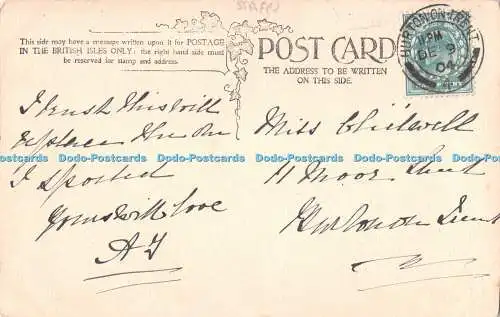 STAFFS
This side may have a message written upon it for POSTAGE
IN THE BRITISH ISLES ONLY: the right hand side must
be reserved for stamp and address.
POST CARD
THE ADDRESS TO BE WRITTEN
ON THIS SIDE.
BURTON-ON-TRENT
PM
DE 9
04
I trust this will
replace the one
I spoiled
Yours with love
Miss Chilwell
11 Moor Street
Burton on Trent
Dodo-Postcards Dodo-Postcards Dodo-Postcards Dodo-Postcards Dodo-Postcards